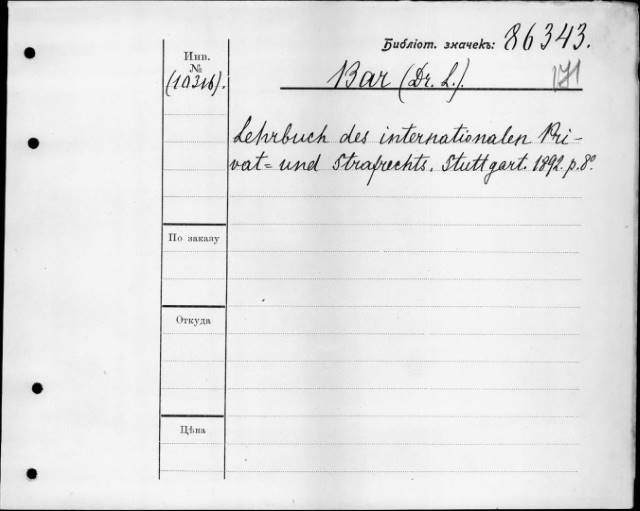 Библіот. значекъ: 86343.
Инв.
№
(10316).
Bar (Dr. L.).
171
Lehrbuch des internationalen Pri-
vat= und Strafrechts. Stuttgart. 1892. p. 8º.
По заказу
Откуда
Цѣна